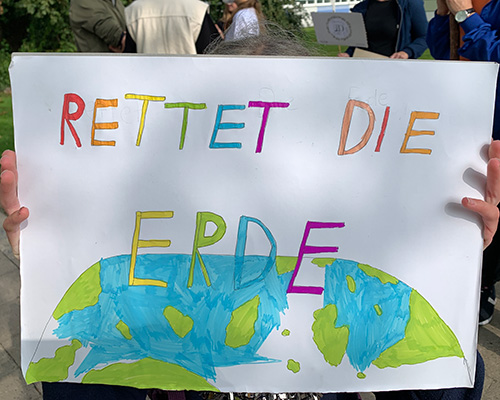 RETTET DIE
ERDE